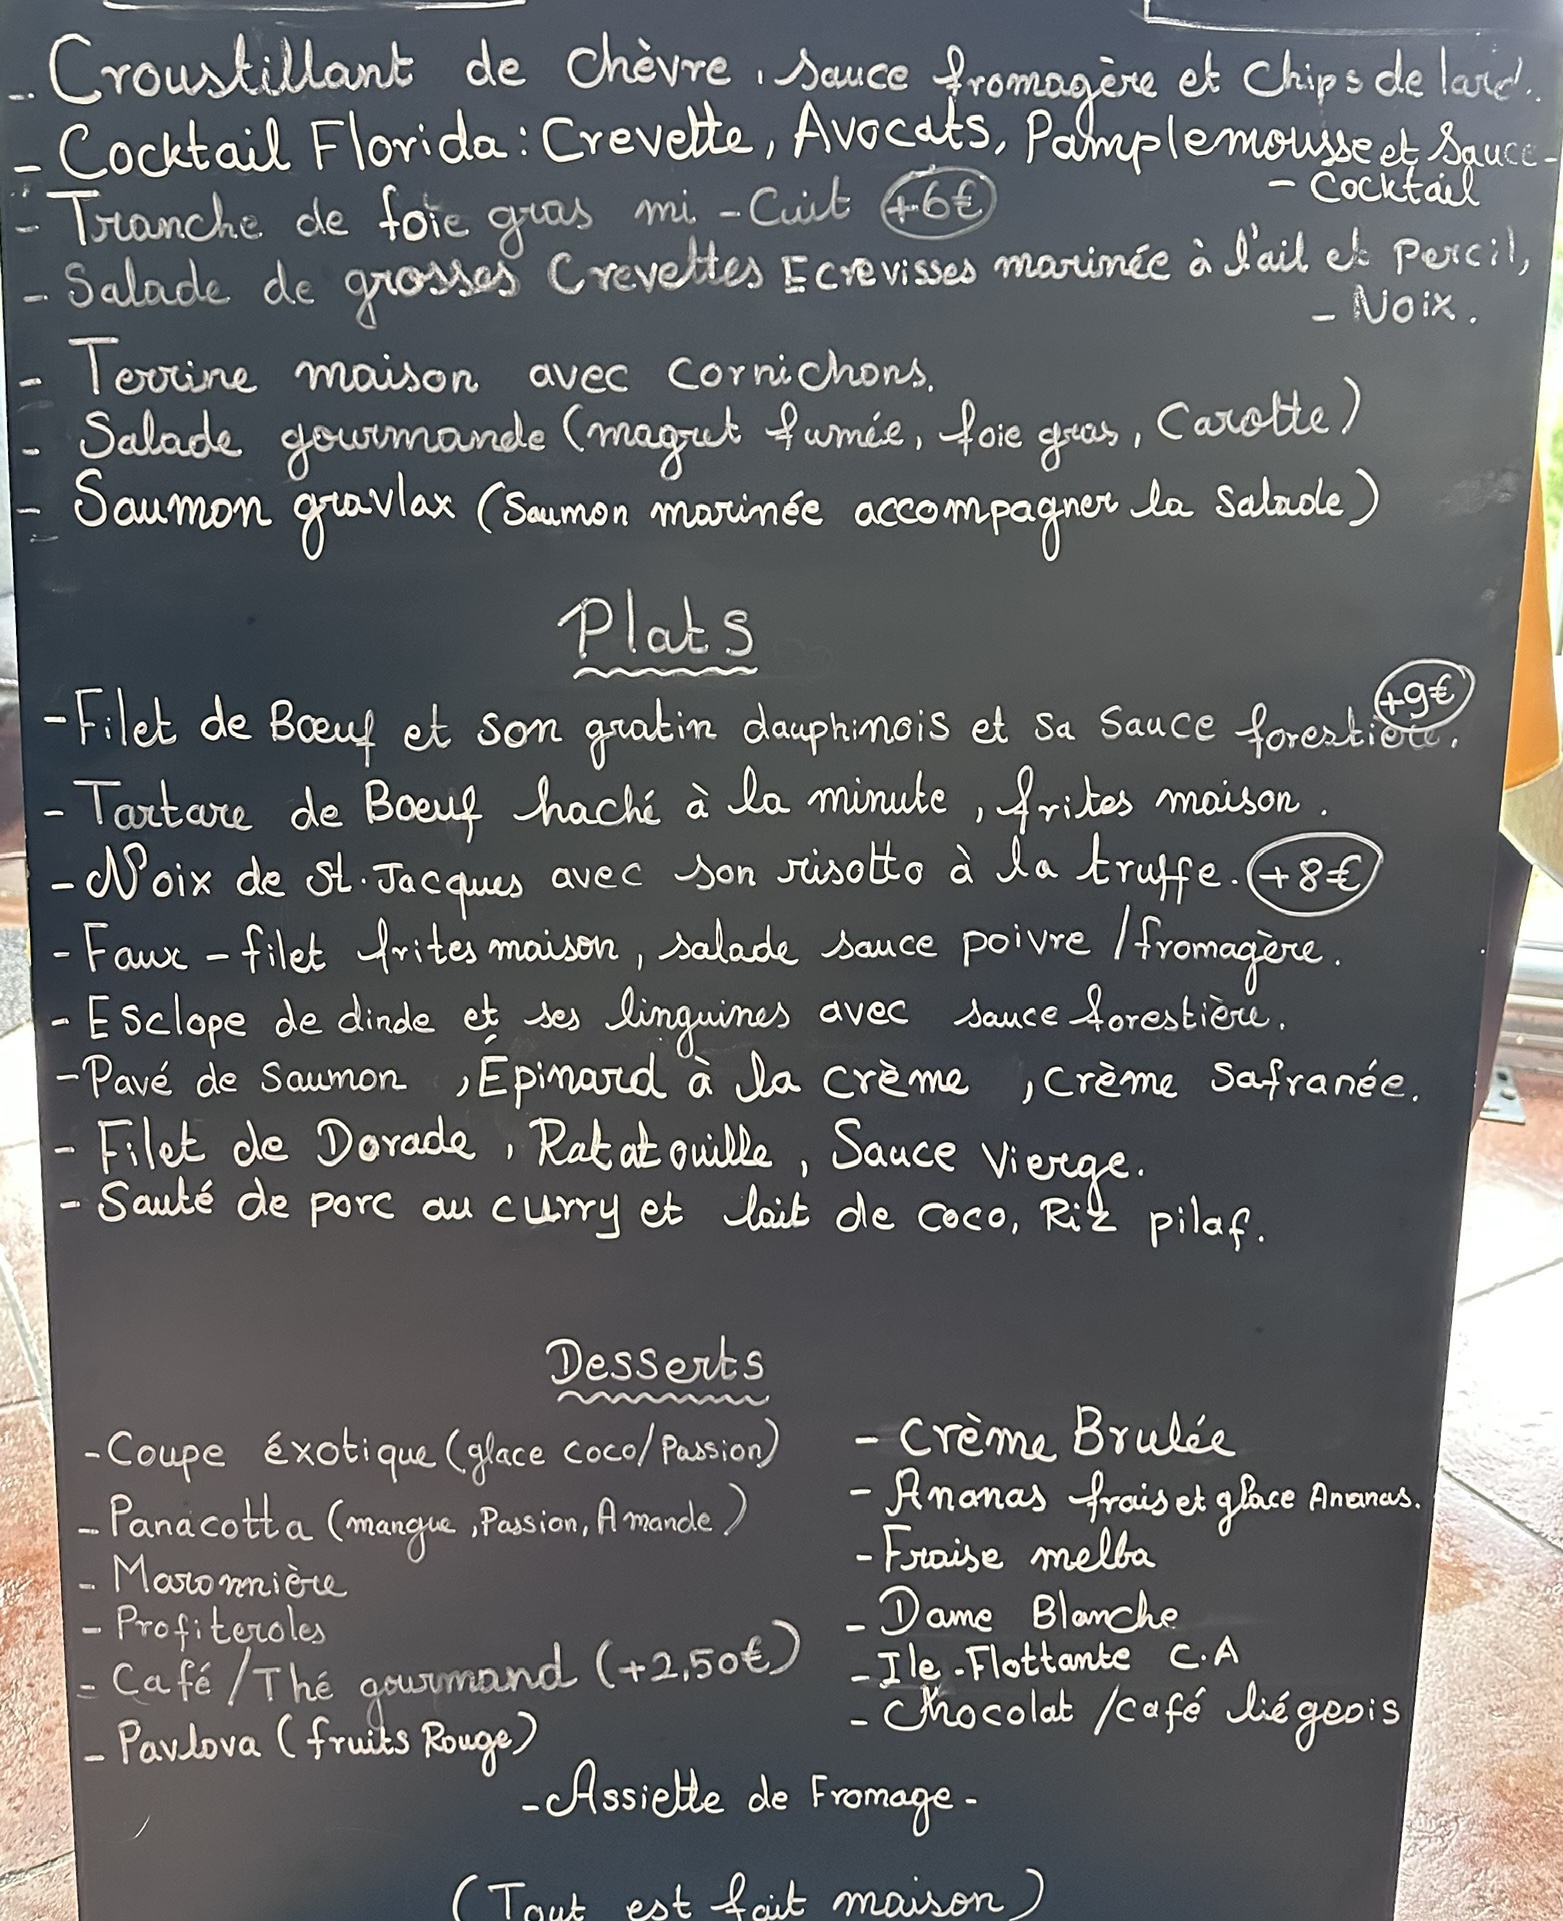 - Croustillant de chèvre, sauce fromagère et chips de lard.
- Cocktail Florida : Crevette, Avocats, Pamplemousse et Sauce -
- Cocktail
- Tranche de foie gras mi-Cuit +6€
- Salade de grosses Crevettes Ecrevisses marinée à l'ail et Percil,
- Noix.
- Terrine maison avec cornichons.
- Salade gourmande (magret fumée, foie gras, Carotte)
- Saumon gravlax (Saumon marinée accompagner la Salade)
Plats
- Filet de Bœuf et son gratin dauphinois et sa Sauce forestière. +9€
- Tartare de Bœuf haché à la minute, frites maison.
- Noix de St. Jacques avec son risotto à la truffe. +8€
- Faux-filet frites maison, salade sauce poivre / fromagère.
- Esclope de dinde et ses linguines avec sauce forestière.
- Pavé de Saumon, Épinard à la crème, crème Safranée.
- Filet de Dorade, Ratatouille, Sauce Vierge.
- Sauté de porc au curry et lait de coco, Riz pilaf.
Desserts
- Coupe éxotique (glace coco/Passion)
- Panacotta (mangue, Passion, Amande)
- Maronnière
- Profiteroles
- Café/Thé gourmand (+2,50€)
- Pavlova (fruits Rouge)
- Crème Brulée
- Ananas frais et glace Ananas.
- Fraise melba
- Dame Blanche
- Ile-Flottante C.A
- Chocolat /café liégeois
- Assiette de Fromage -
(Tout est fait maison)